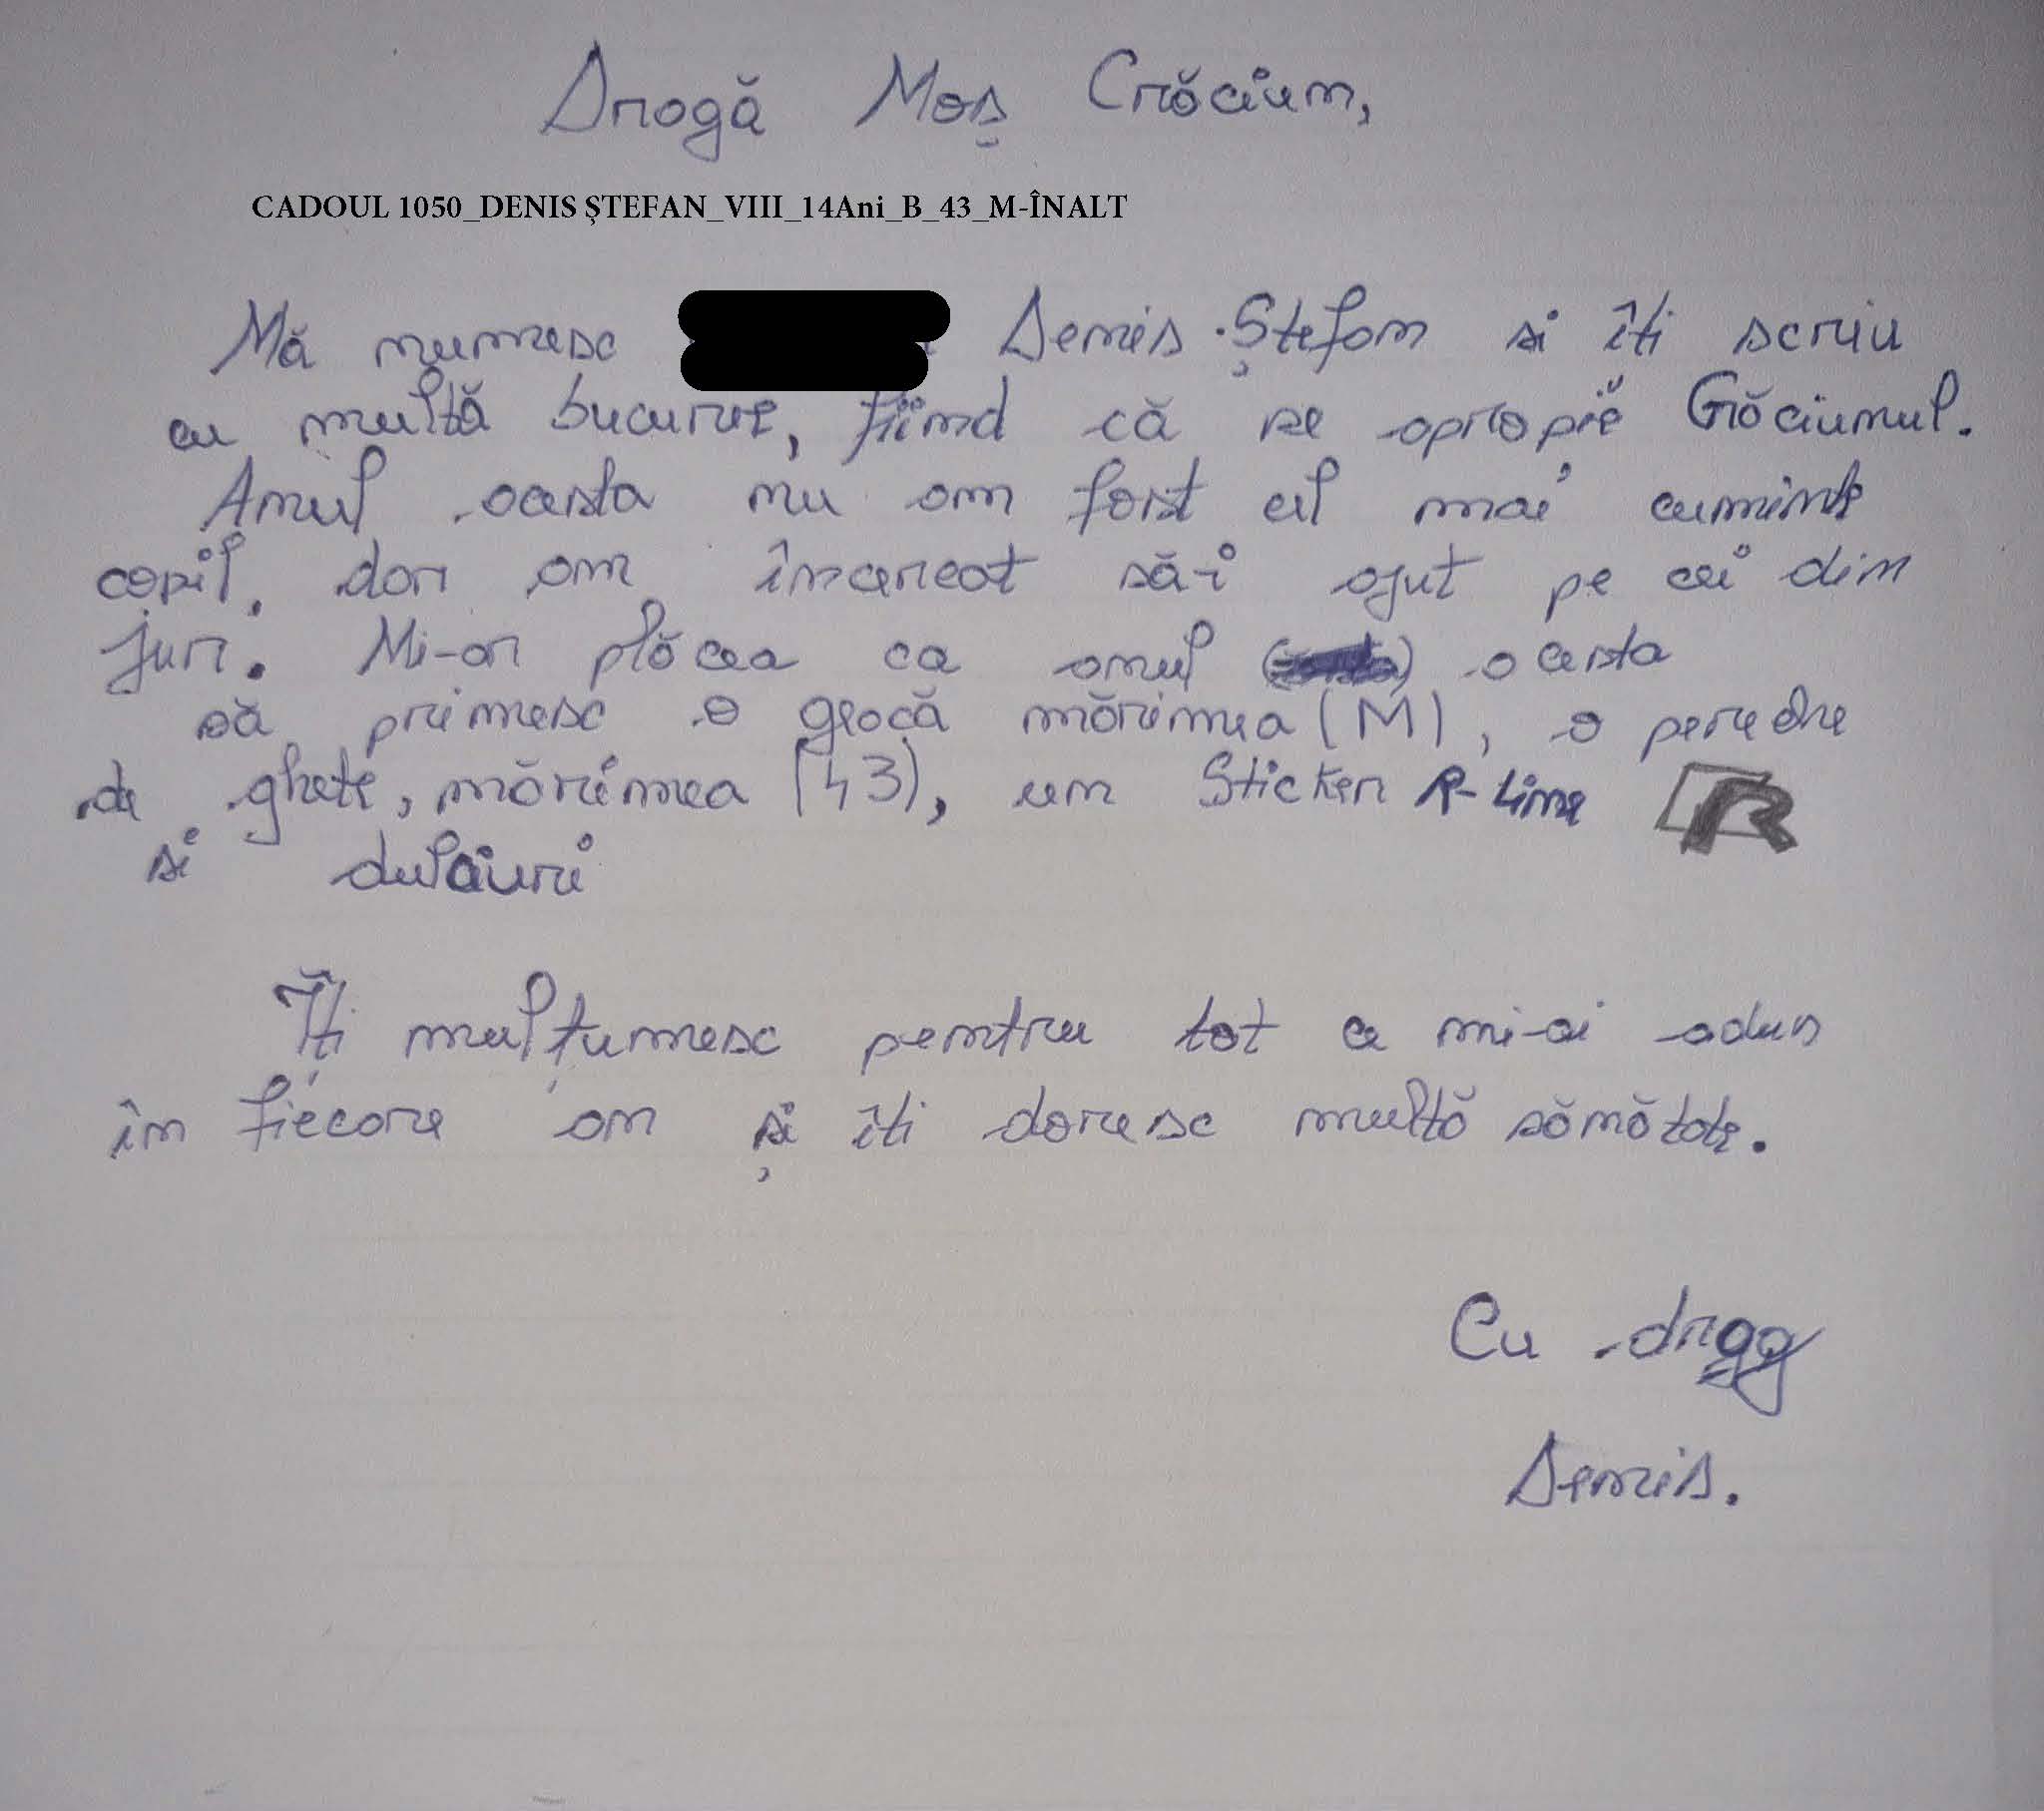 Dragă Moș Crăciun,
CADOUL 1050_DENIS ŞTEFAN_VIII_14Ani_B_43_M-ÎNALT
Mă numesc Denis Ștefan si îti scriu
cu multă bucurie, fiind că se apropie Crăciunul.
Anul acesta nu am fost cel mai cuminte
copil, dar am încercat să-i ajut pe cei din
jur. Mi-ar plăcea ca anul acesta
să primesc o geacă mărimea (M), o pereche
de ghete, mărimea (43), un Sticker R-Line R
si dulciuri
Îți mulțumesc pentru tot ce mi-ai adus
în fiecare an și îti doresc multă sănătate.
Cu drag
Denis.